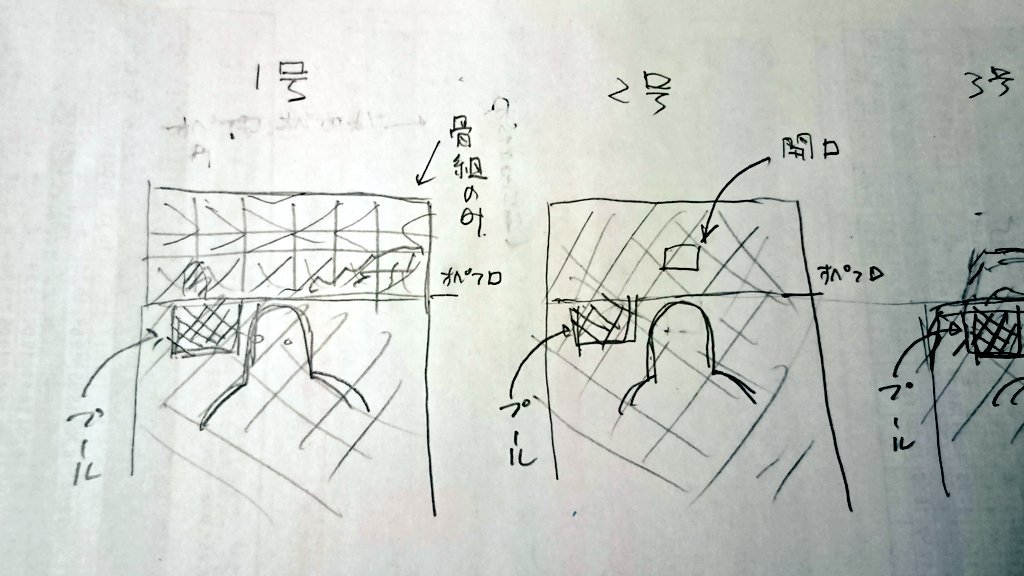 1号
2号
3号
骨組のみ
開口
オペフロ
オペフロ
プール
プール
プール